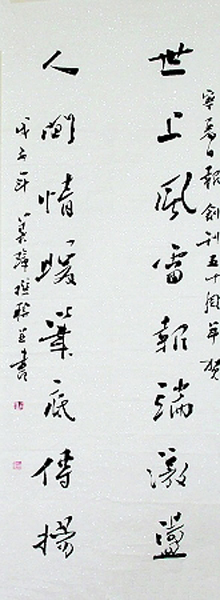 寧夏日報創刊五十周年賀
世上風雷報端激盪
人間情暖筆底傳揚
戊子年 善璋撰聯並書